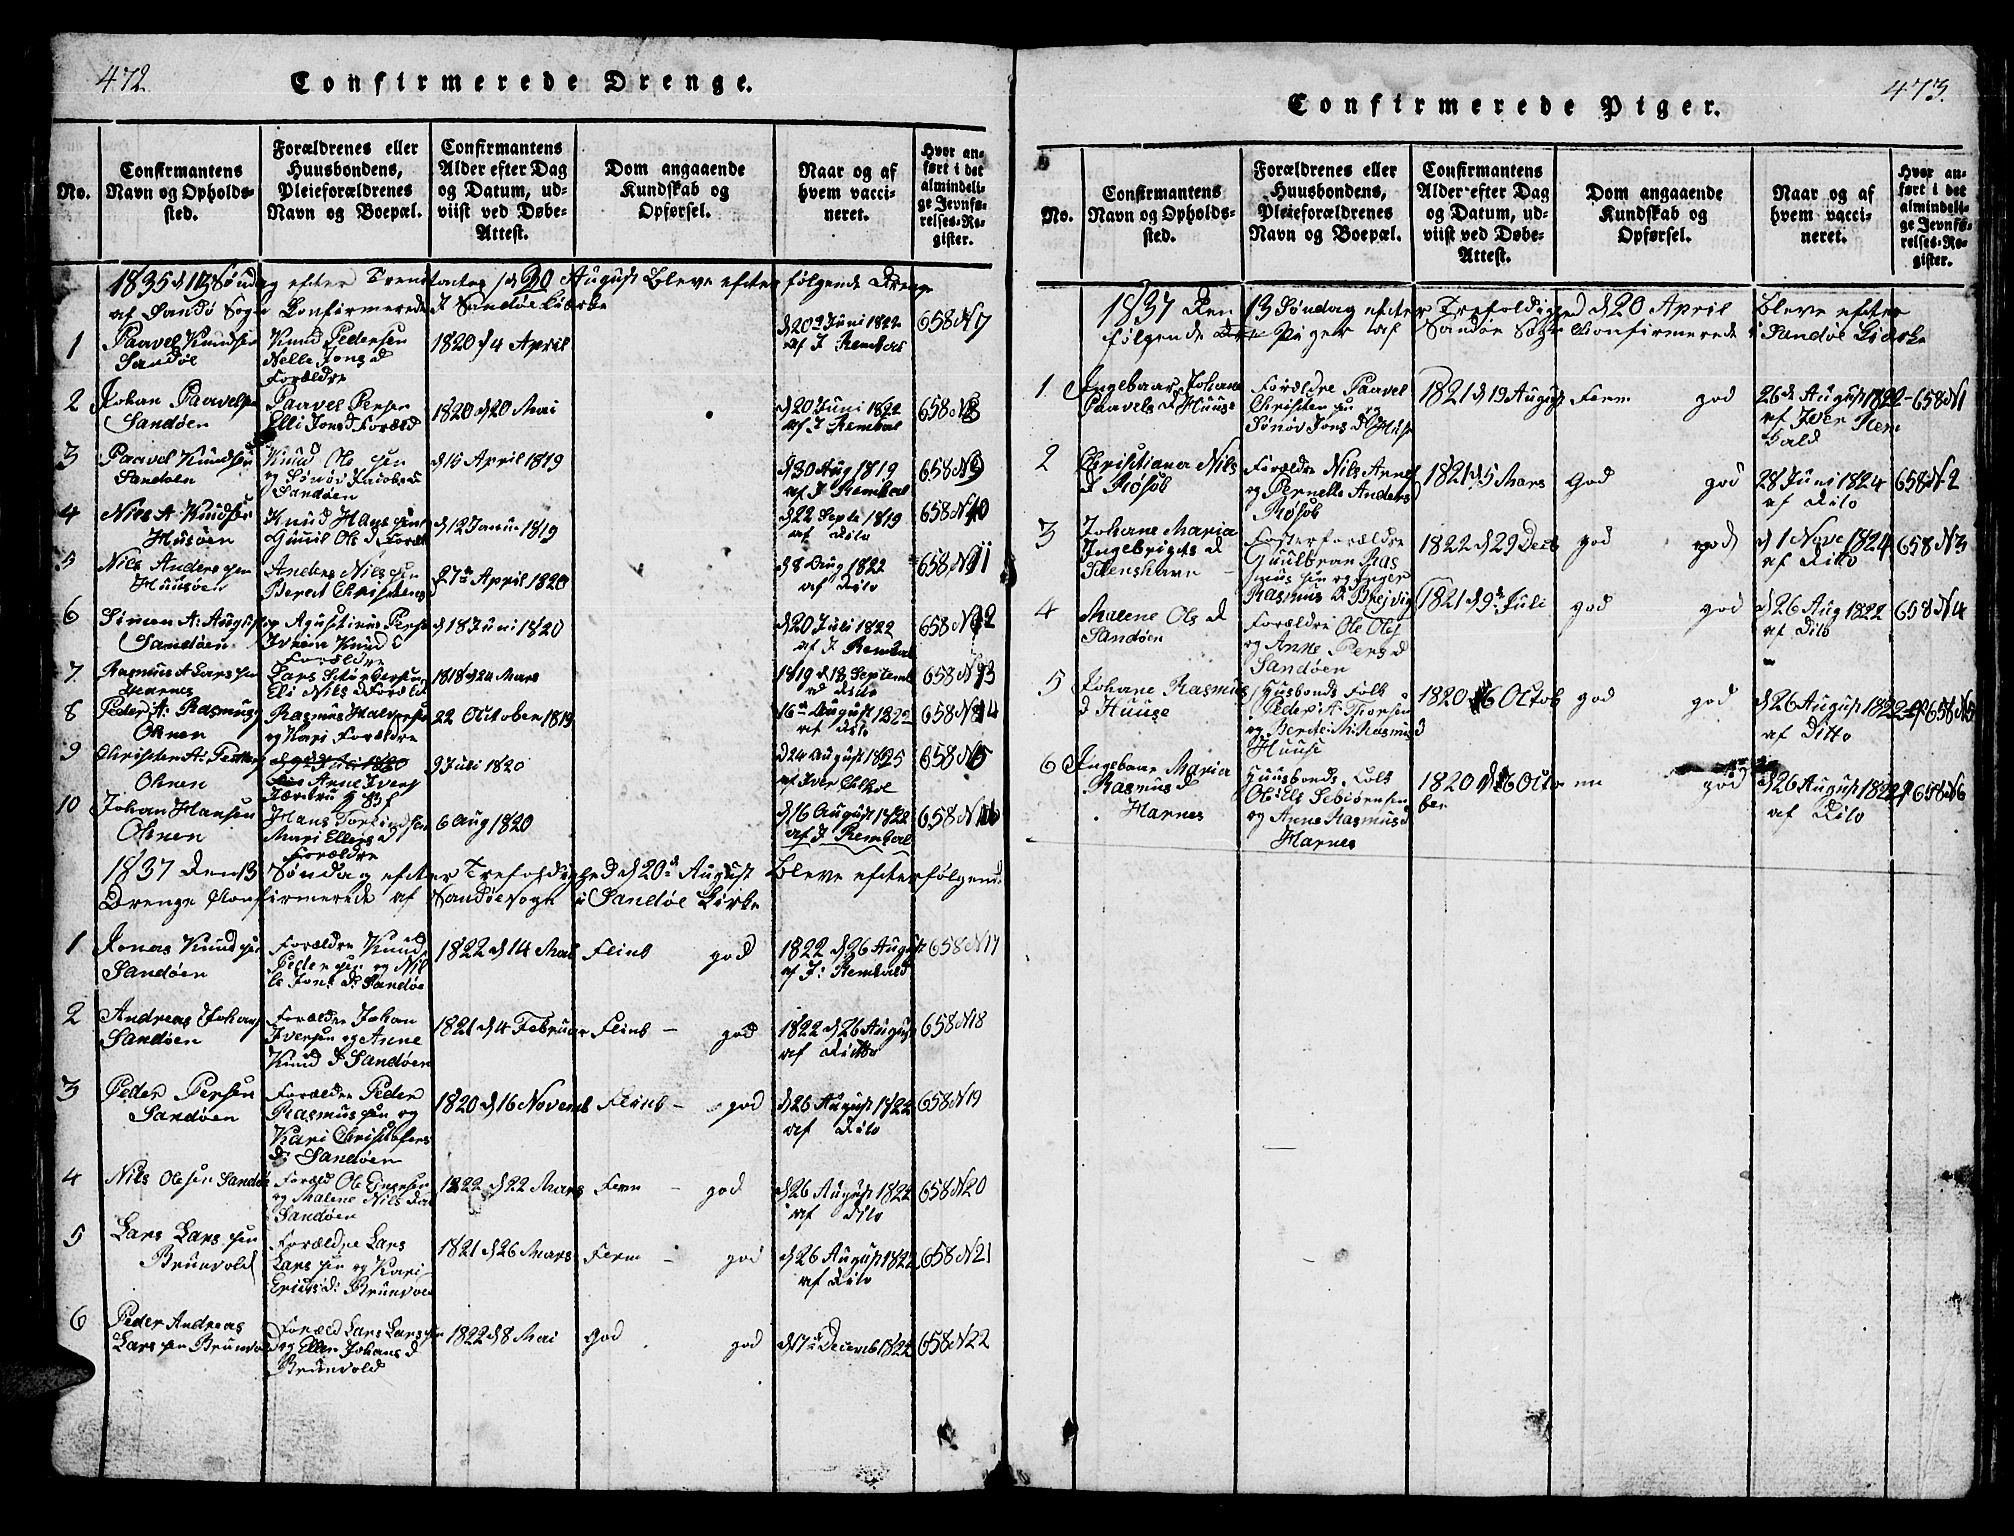 472
Confirmerede Drenge.
No.
Confirmantens
Navn og Opholds-
sted.
Forældrenes eller
Huusbondens,
Pleieforældrenes
Navn og Boepæl.
Confirmantens
Alder efter Dag
og Datum, ud-
viist ved Døbe-
Attest.
Dom angaaende
Kundskab og
Opførsel.
Naar og af
hvem vacci-
neret.
Hvor an-
ført i det
almindeli-
ge Jevnfø-
relses-Re-
gister.
1835 Søndag efter August Bleve efter følgende Drenge
af Sandø Sogn Confirmerede I Sandøe Kirke
1 Paavel Knudsen
Sandøe
Knud Pedersen
Nelle Jons d
Forældre
1820 4 April
d 20 Juni 1822
af I Rembal
658 N 7
2 Johan Paavelsen
Sandøen
Paavel Persen
Elli Jonsd Foræld
1820 d 20 Mai
d 20 Juni 1822
af I Rembal
658 N 8
3 Paavel Knudsen
Sandøen
Knud Ole sen
og Sønøv Jacobs d
Sandøen
d 15 April 1819
d 30 Aug 1819
af I Rembal
658 N 9
4 Nils A Knudsen
Husøen
Knud Hans sen
Gunil Ols d Foræld
d 12 Januu 1819
d 22 Septe 1819
af Dito
658 N 10
5 Nils Anders sen
Huusøen
Anders Nils sen
Beret Christens d
27 April 1820
d 8 Aug 1822
af Dito
658 N 11
6 Simen A: August
Sandøen
Agustinus Perse
Iverin Knud d
Forældre
d 18 Juni 1820
d 20 Juli 1822
af I Rembal
658 N 12
7 Rasmus A Lars sen
Harnes
Lars
Eli Nils d Foræld
1818 d 24 Mars
1819 d 18 Septemb
af Dito
658 N 13
8 Peder A: Rasmus
Ohnen
Rasmus Halversen
og Kari Forældre
22 October 1819
16 August 1822
af Dito
658 N 14
9 Christen A:
Ohnen
Anne Ivers
9 Juli 1820
d 24 August 1825
af Iver
658 N 15
10 Johan Hansen
Ohnen
Hans
Mari Ellings d
Forældre
6 Aug 1820
d 16 August 1822
af I Rembal
658 N 16
1837 Den 13 Søndag efter Trefoldighed d 20 August Bleve efter følgend
Drenge Confirmerede af Sandøe Sogn i Sandøe Kirke
1 Jonas Knud sen
Sandøen
Forældre Knud
Peder sen og Nil
le Jons d: Sandøe
1822 d 14 Mai
Flink god
1822 d 26 August
af I: Rembald
658 N 17
2 Andreas Johans
Sandøen
Forældre Johan
Iversen og Anne
Knud d Sandøen
1821 d 4 Februar
Flink - god
1822 d 26 August
af Ditto
658 N 18
3 Peder Persen
Sandøen
Forældre Peder
Rasmus sen og
Kari Christofers
d: Sandøen
1820 d 16 Novemb
Flink - god
d 26 August 1822
af Dito
658 N 19
4 Nils Olesen Sandø
Foræld Ole Einersen
og Malene Nils d
Sandøen
1822 d 22 Mars
Ferm - god
d 26 August 1822
af Dito
658 N 20
5 Lars Lars sen
Brunvold
Forældre Lars
Lars sen og Kari
Erics d: Brunvol
1821 d 26 Mars
Ferm - god
d 26 August 1822
af Dito
658 N 21
6 Peder Andreas
Lars sen Brunvold
Foræld Lars Lars sen
og Ellen Johans d
Brunvold
1822 d 8 Mai
god god
d 17 Decemb 1822
658 N 22
473.
Confirmerede Piger.
No.
Confirmantens
Navn og Opholds-
sted.
Forældrenes eller
Huusbondens,
Pleieforældrenes
Navn og Boepæl.
Confirmantens
Alder efter Dag
og Datum, ud-
viist ved Døbe-
Attest.
Dom angaaende
Kundskab og
Opførsel.
Naar og af
hvem vacci-
neret.
Hvor an-
ført i det
almindeli-
ge Jevnfø-
relses-Re-
gister.
1837 Den 13 Søndag efter Trefoldighed d 20 April Bleve efter
følgende Piger af Sandøe Sogn Confirmerede i Sandøe Kirke
1 Ingebaar Johane
Paavels d Huuse
Forældre Paavel
Christen sen og
Sønøv Jons d Huse
1821 d 19 August
Ferm god
26 d August 1822
af Iver Rem
bald
658 N 1
2 Christiana Nils
d Røsok
Forældre Nils Anders
og Pernelle Anders d
Røsok
1821 d 5 Mars
God god
28 Juni 1824
af Dito
658 N 2
3 Johane Maria
Ingebrigts d
Steenshavn
Fosterforældre
Guulbran Ras
mus sen og Inger
Rasmus d Breivig
1822 d 29 Decb
god god
d 1 Nove 1824
af Ditto
658 N 3
4 Malene Ols d
Sandøen
Forældre Ole Ols
og Anne Pers d
Sandøen
1821 d 9 Juli
god god
d 26 Aug 1822
af Dito
658 N 4
5 Johane Rasmus
d Huuse
Husbonds Folk
Peder A:
og Berte M: Rasmus d
Huuse
1820 16 Octob
god god
d 26 August 1822
af Ditto
658 N 5
6 Ingebaar Maria
Rasmus d
Harnes
Huusbonds Folk
og Anne Rasmus d
Harnes
1820 d 16 Octo
ber
god
d 26 August 1822
af Dito
658 N 6